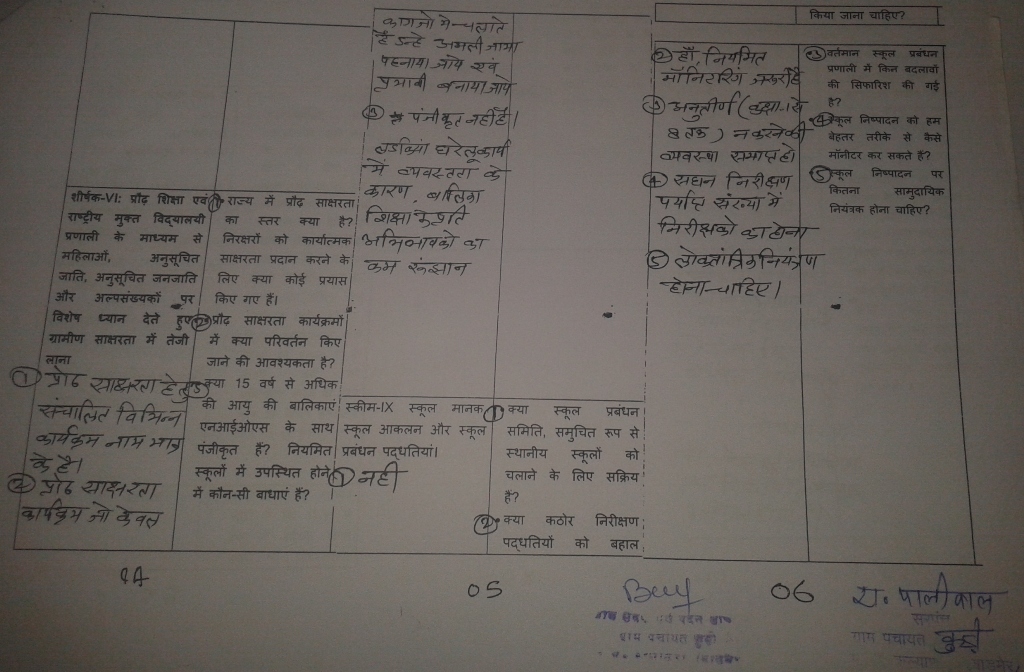 शीर्षक-VI: प्रौढ़ शिक्षा एवं
राष्ट्रीय मुक्त विद्यालयी
प्रणाली के माध्यम से
महिलाओं, अनुसूचित
जाति, अनुसूचित जनजाति
और अल्पसंख्यकों पर
विशेष ध्यान देते हुए
ग्रामीण साक्षरता में तेजी
लाना
① प्रौढ साक्षरता हेतु
संचालित विभिन्न
कार्यक्रम नाम मात्र
के है।
② प्रौढ साक्षरता
कार्यक्रम जो केवल
① राज्य में प्रौढ़ साक्षरता
का स्तर क्या है?
निरक्षरों को कार्यात्मक
साक्षरता प्रदान करने के
लिए क्या कोई प्रयास
किए गए हैं।
② प्रौढ़ साक्षरता कार्यक्रमों
में क्या परिवर्तन किए
जाने की आवश्यकता है?
③ क्या 15 वर्ष से अधिक
की आयु की बालिकाएं
एनआईओएस के साथ
पंजीकृत हैं? नियमित
स्कूलों में उपस्थित होने
में कौन-सी बाधाएं हैं?
कागजो मे चलाते
है उन्हे अमली जामा
पहनाया जाये एवं
प्रभावी बनाया जाये
③ पंजीकृत नहीं है।
लडकियां घरेलू कार्य
में व्यस्तता के
कारण, बालिका
शिक्षा के प्रति
अभिभावको का
कम रूंझान
स्कीम-IX स्कूल मानक
स्कूल आकलन और स्कूल
प्रबंधन पद्धतियां।
① नही
① क्या स्कूल प्रबंधन
समिति, समुचित रूप से
स्थानीय स्कूलों को
चलाने के लिए सक्रिय
हैं?
② क्या कठोर निरीक्षण
पद्धतियों को बहाल
② हाँ, नियमित
मॉनिटरिंग जरूरी है
③ अनुतीर्ण (कक्षा 1 से
8 तक) न करने की
व्यवस्था समाप्त हो
④ सघन निरीक्षण
पर्याप्त संख्या में
निरीक्षको का होना
⑤ लोकतांत्रिक नियंत्रण
होना चाहिए।
किया जाना चाहिए?
③ वर्तमान स्कूल प्रबंधन
प्रणाली में किन बदलावों
की सिफारिश की गई
है?
④ स्कूल निष्पादन को हम
बेहतर तरीके से कैसे
मॉनीटर कर सकते हैं?
⑤ स्कूल निष्पादन पर
कितना सामुदायिक
नियंत्रक होना चाहिए?
05
06
पालीवाल
सरपंच
ग्राम पंचायत